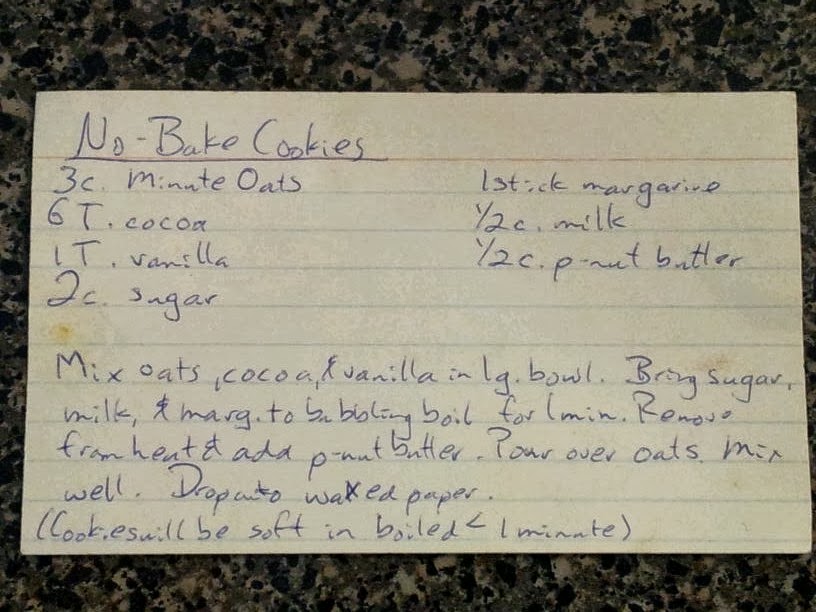 No-Bake Cookies
3c. Minute Oats
6 T. cocoa
1 T. vanilla
2c. sugar
1 stick margarine
1/2 c. milk
1/2 c. p-nut butter
Mix oats, cocoa, & vanilla in lg. bowl. Bring sugar,
milk, & marg. to bubbling boil for 1 min. Remove
from heat & add p-nut butter. Pour over oats. Mix
well. Drop onto waxed paper.
(Cookies will be soft in boiled < 1 minute)